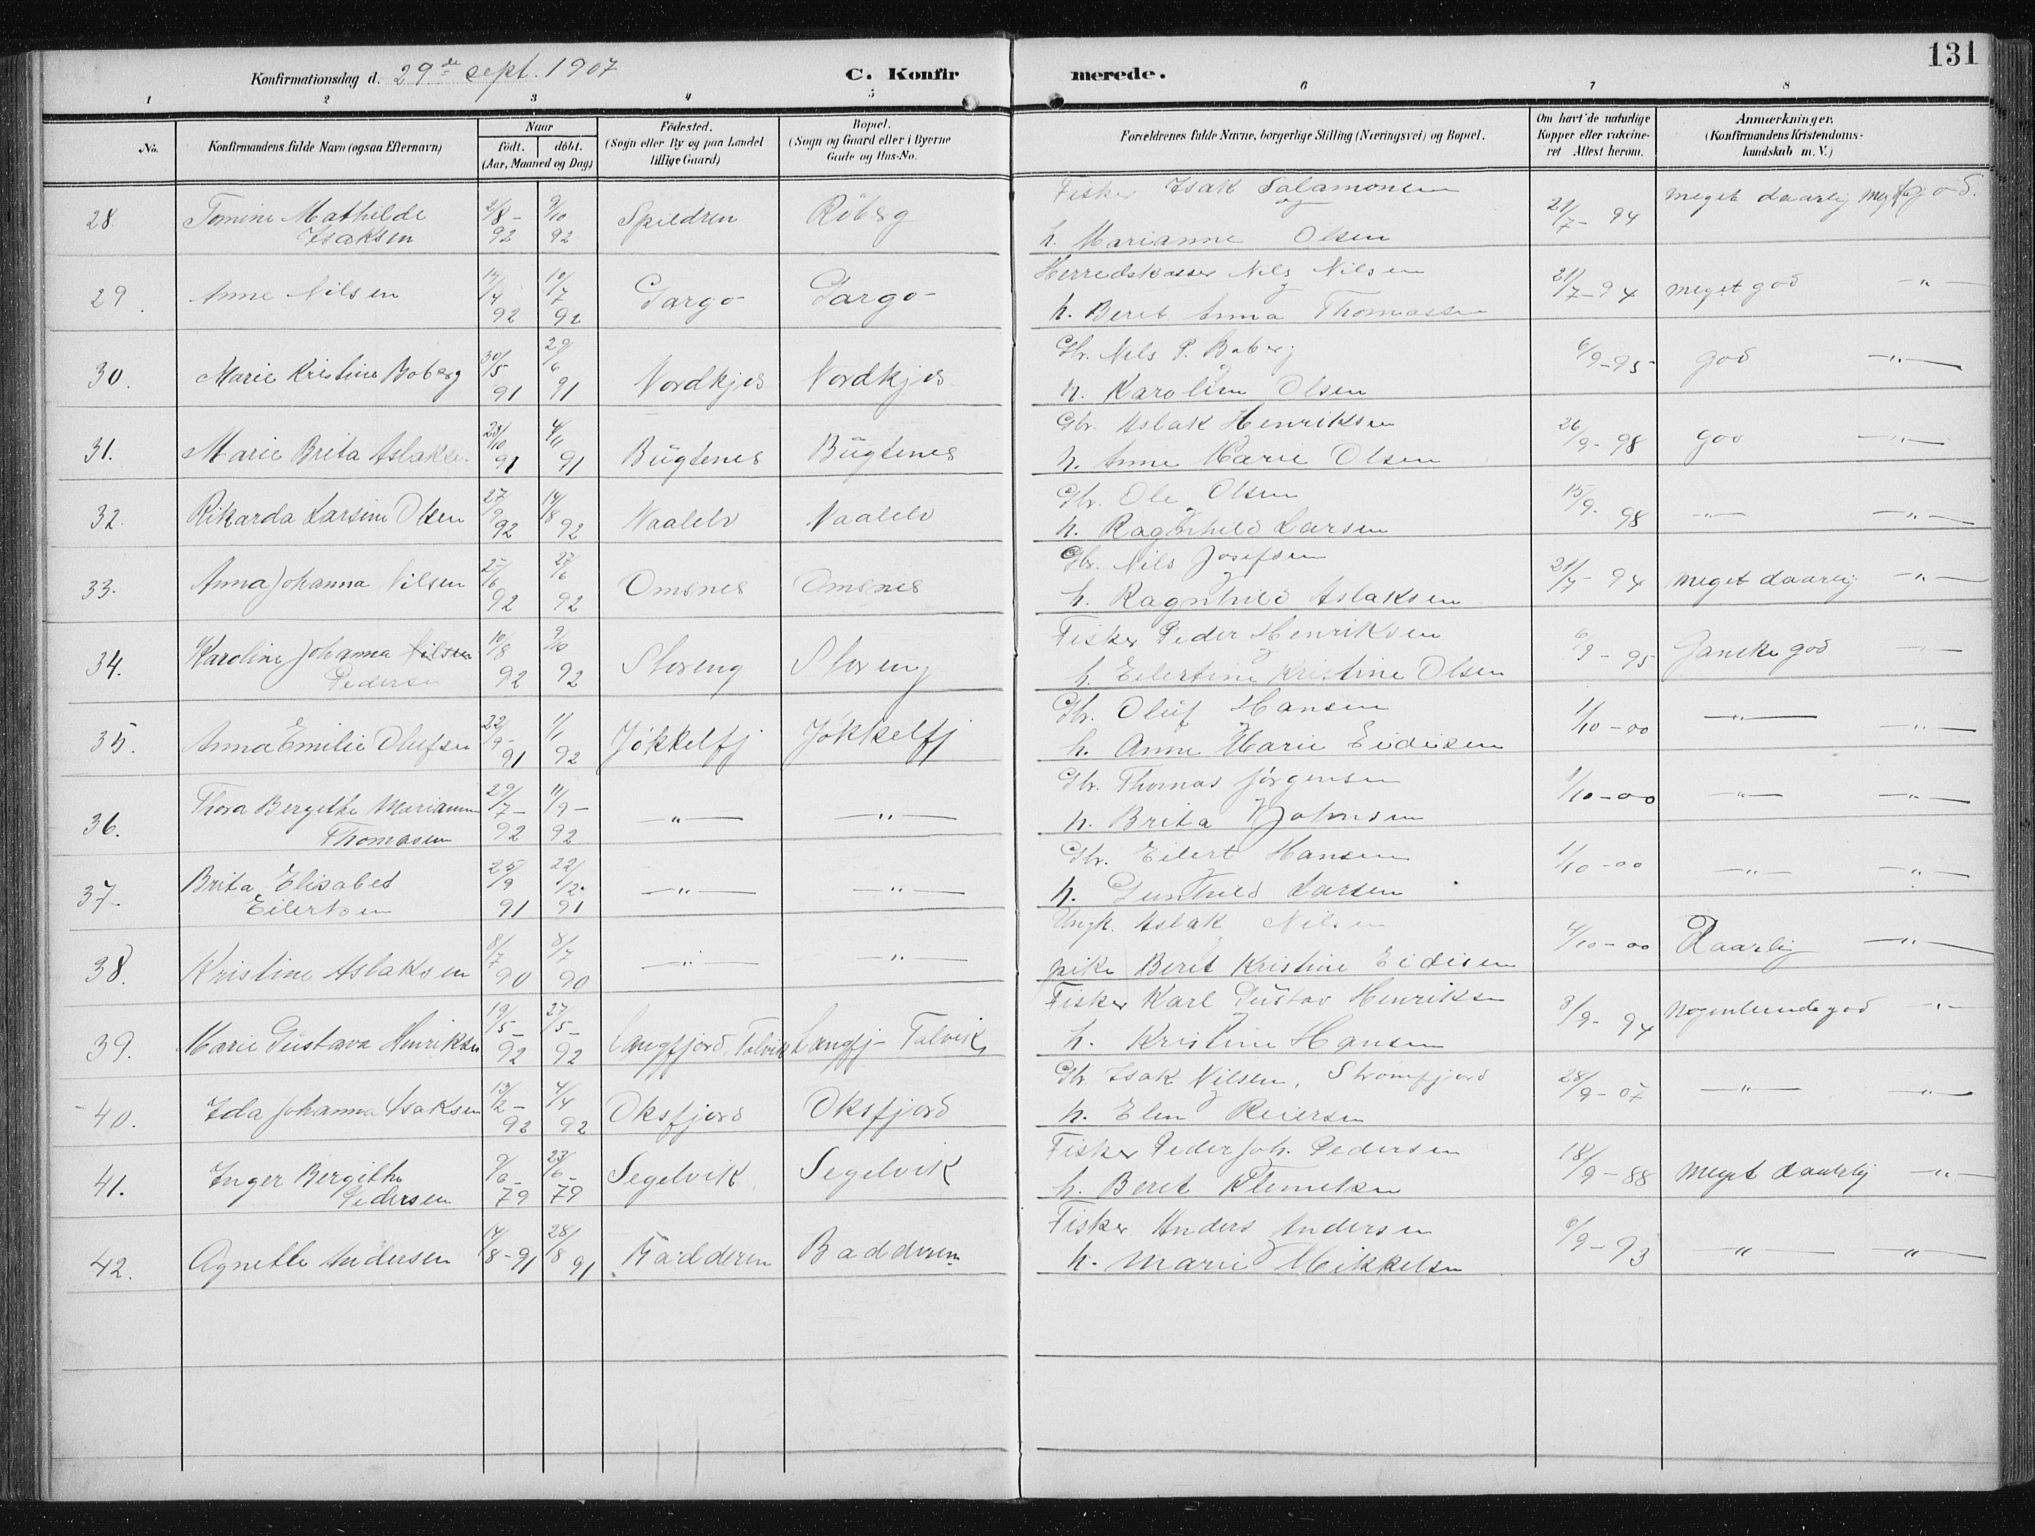 131
Konfirmationsdag d. 29de sept. 1907 C. Konfirmerede.
1 2 3 4 5 6 7 8
No. Konfirmandens fulde Navn (ogsaa Efternavn) Naar født. døbt. (Aar, Maaned og Dag) Fødested. (Sogn eller By og paa Landet tillige Gaard) Bopæl. (Sogn og Gaard eller i Byerne Gade og Hus-No. Forældrenes fulde Navne, borgerlige Stilling (Næringsvei) og Bopæl. Om havt de naturlige Kopper eller vaccineret Attest herom. Anmærkninger. (Konfirmandens Kristendomskundskab m. V.)
28. Tomine Mathilde Isaksen 2/8-92 9/10 92 Spildren Röberg Fisker Isak Salamonsen og h. Marianne Olsen 21/7-94 meget daarlig god.
29 Anne Nilsen 4 92 10/7 92 Gargo Gargo Herredskasser Nils Nilsen h. Beret Anna Thomassen 21/7-94 meget god -"-
30. Marie Kristine Boberg 30/5 91 29/6 91 Nordkjos Nordkjos Gbr. Nils P. Boberg h. Karoline Olsen 6/9-95 god -"-
31. Marie Brita Aslakse 10 91 4/11 91 Bügtenes Bügtenes Gbr. Aslak Henriksen h. Anne Marie Olsen 26/9-98 god -"-
32. Rikarda Larsine Olsen 27 92 14/8 92 Naalelv Naalelv Gbr. Ole Olsen h. Ragnhild Larsen 15/9. 98 -"- -"-
33. Anna Johanna Nilsen 6 92 27/6 92 Omsnes Omsnes Gbr. Nils Josefsen h. Ragnhild Aslaksen 21/7-94 meget daarlig -"-
34. Karoline Johanna Nilsen Pedersen 10/8 92 9/10 92 Storeng Storeng Fisker Peder Henriksen h. Eilertine Kristine Olsen 6/9-95 Ganske god -"-
35. Anna Emilie Olufsen 22/9-91 1/1 92 Jøkkelfj Jøkkelfj Gbr. Oluf Hansen h. Anne Marie Eidisen 1/10-00 -"- -"-
36. Thora Bergithe Marianne Thomasen 29/7-92 11/9-92 -"- -"- Gbr. Thomas Jørgensen h. Brita Johnsen 1/10-00 -"- -"-
37- Brita Elisabet Eilertsen 25/9 91 22/12. 91 -"- -"- Gbr. Eilert Hansen h. Gunhild Larsen 1/10-00 -"- -"-
38. Kristine Aslaksen 8/7 90 8/7 90 -"- -"- Ungk. Aslak Nilsen pike Berit Kristine Eidisen 4/10-00 Daarlig -"-
39. Marie Gustava Henriksen 19/5-92 27/5-92 Langfjord, Talvik Langfj- Talvik Fisker Karl Gustav Henriksen h. Kristine Hansen 3/9-94 Nogenlunde god -"-
40. Ida Johanna Isaksen 13/2-92 4/4 92 Oksfjord Oksfjord Gbr. Isak Nilsen, Stromfjord h. Elen Reiersen 28/9-07 -"- -"-
41. Inger Bergithe Pedersen 9/6-79 23/6-79 Segelvik Segelvik Fisker Peder Joh. Pedersen h. Beret Klemetsen 18/9-88 Meget daarlig -"-
42. Agnethe Andersen 8-91 28/8 91 Badderen Badderen Fisker Anders Andersen h. Marie Mikkelsen 6/9-93 -"- -"-